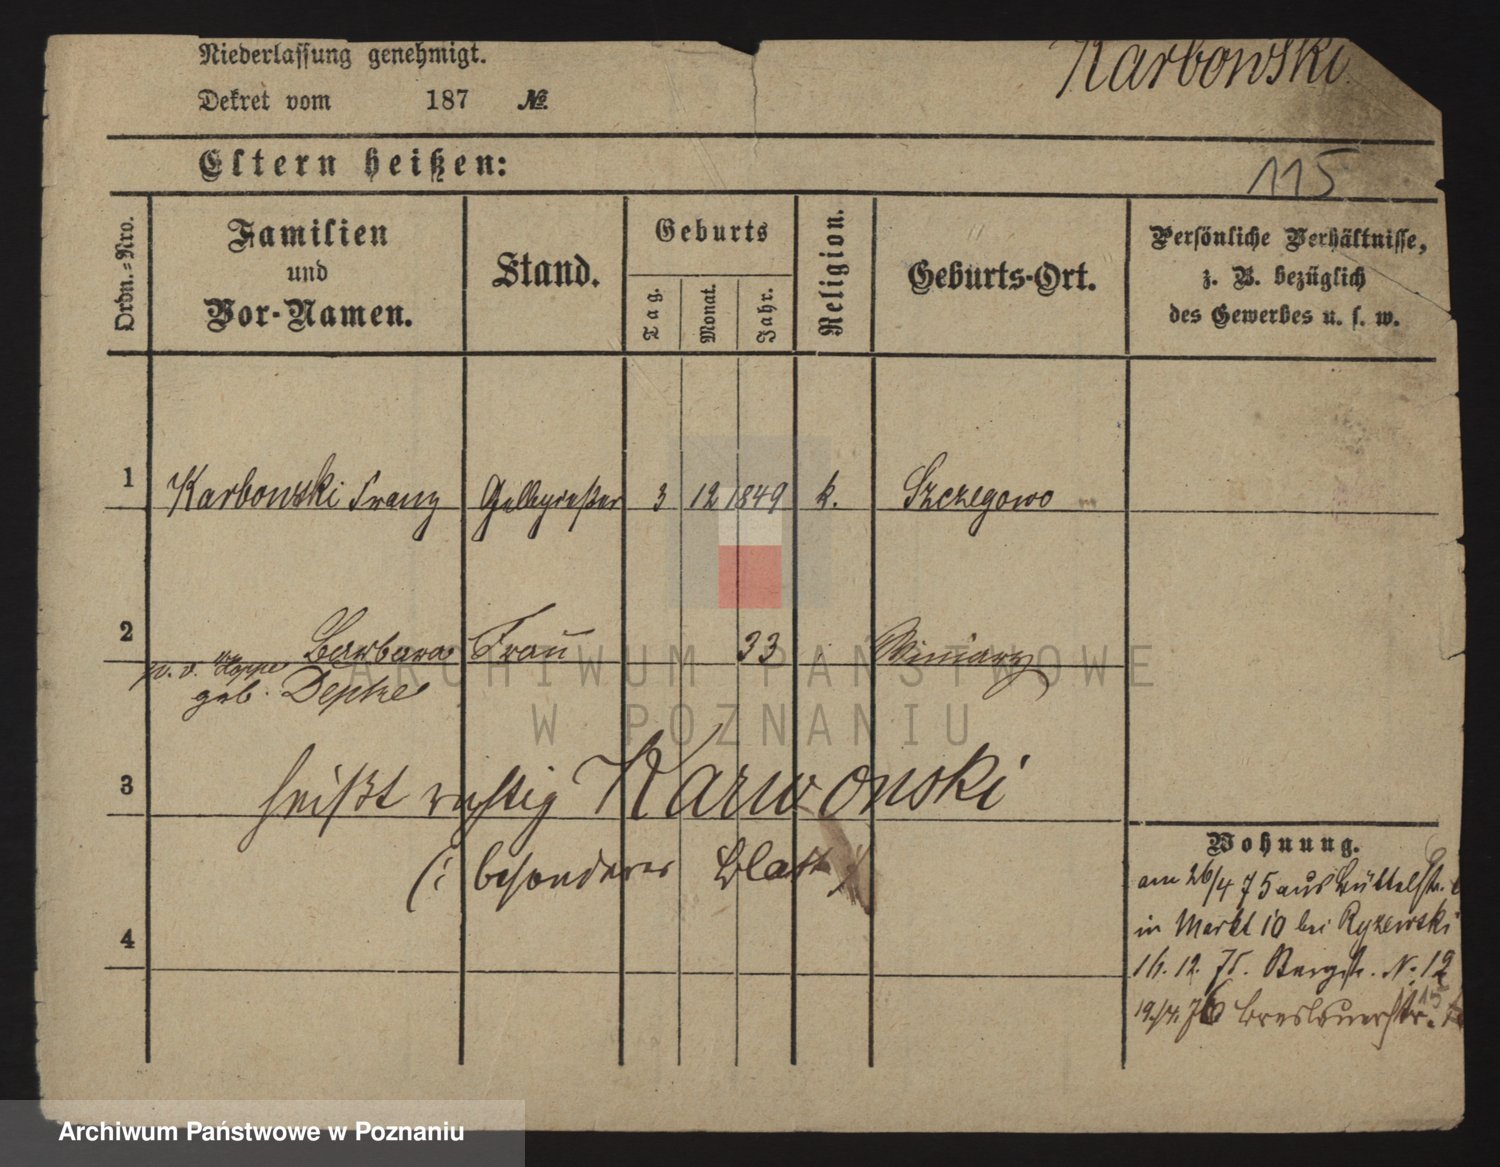 Niederlassung genehmigt.
Karbowski.
Dekret vom 187 №
Eltern heißen:
115
Ordn.=Nro.
Familien
und
Vor-Namen.
Stand.
Geburts
Tag.
Monat.
Jahr.
Religion.
Geburts-Ort.
Persönliche Verhältnisse,
z. B. bezüglich
des Gewerbes u. s. w.
1 Karbowski Franz Gelbgießer 3 12 1849 k. Szczegowo
2 Barbara Frau 33 Winiary
geb. Depke
3 heißt richtig Karwonski
(: besonderes Blatt :)
4
Wohnung.
am 26/4 75 aus Büttelstr.
in Markt 10 bei Ryzewski
16. 12. 75. Bergstr. N. 12
19/4. 76 Breslauerstr. 15
ARCHIWUM PAŃSTWOWE
W POZNANIU
Archiwum Państwowe w Poznaniu